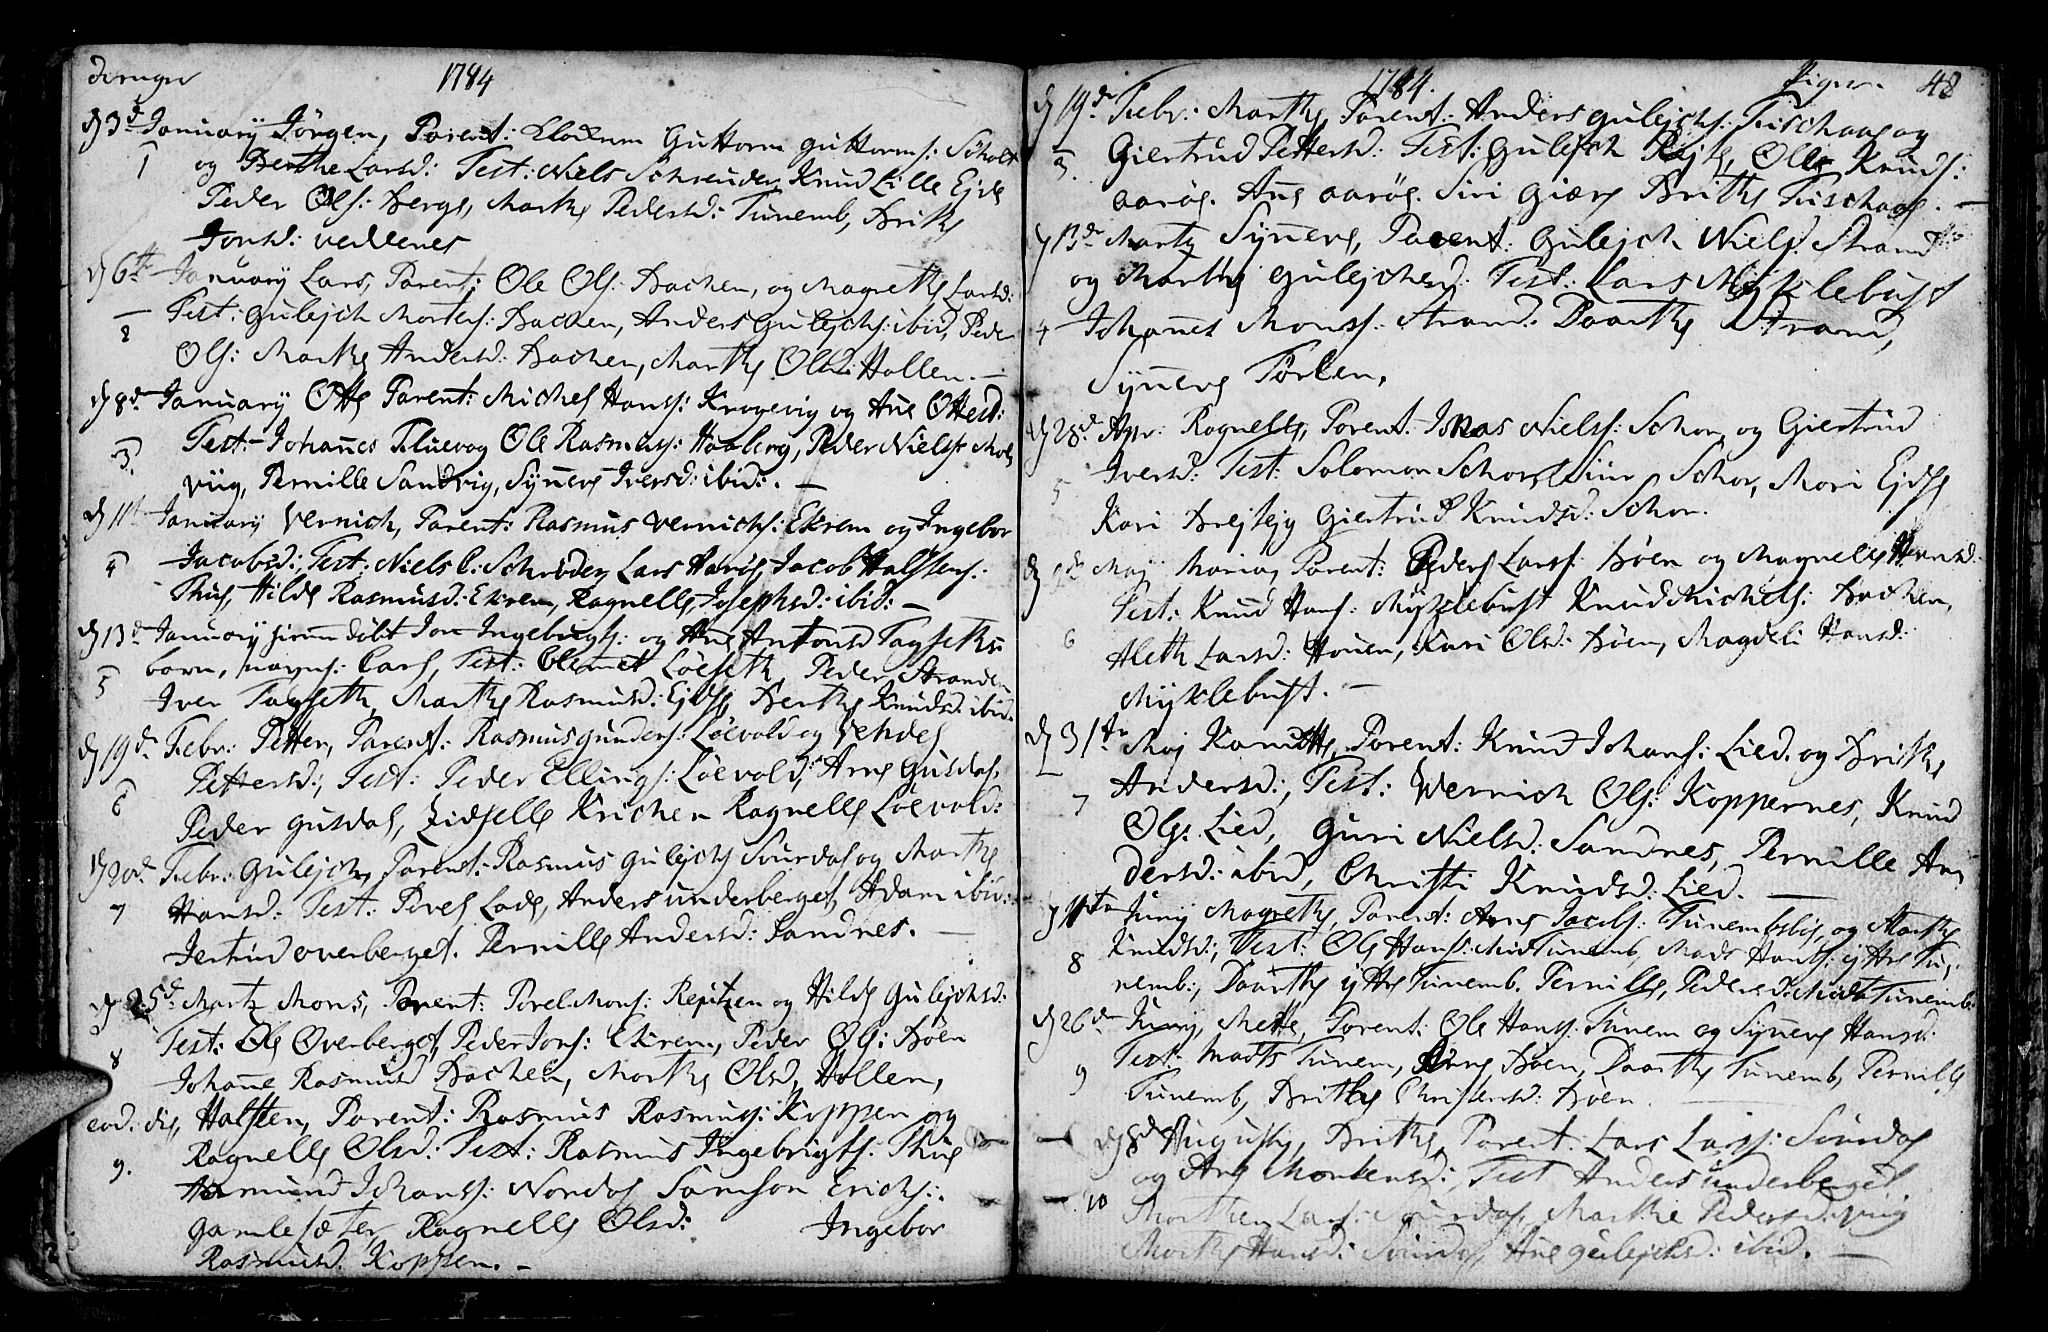 drenger 1784
d 3d January Jörgen, Parent: Guttorm Guttorms:
1 og Berthe Larsd: Test: Niels Schreuder Knud Lille Ejde
Peder Ols: Berge, Marthe Pedersd: Tunemb, Brithe
Jonsd: veddenes
d 6te January Lars, Parent: Ole Ols: Bachen, og Magrethe Larsd:
2 Test: Gulejch Mortens: Bachen, Anders Gulejchs: ibid, Peder
Ols: Marthe Andersd: Bachen, Marthe Olsd: Hollen. —
d 8de January Otte Parent: Michel Hanss: Krogevig og Ane Ottesd:
3. Test: Johannes Fluevog Ole Rasmuss: Haaberg, Peder Nielss: Mols
viig, Pernille Sandvig, Synneve Iversd: ibid: —
d 11te January Vernich, Parent: Rasmus Vernichs: Ekrem og Ingebor
4 Jacobsd:, Test: Niels C: Schröder, Lars Jacob Halstens:
Thue, Hilde Rasmusd: Ekrem, Ragnelle Josephsd: ibid: —
d 13d January hiemmedöbt Jon Ingebrigts: og Ane Antonsd Tafseths
5 barn, nafns: Lars, Test: Clemet Löeseth, Peder Stranden
Iver Tafseth, Marthe Rasmusd: Ejdse Berthe Knudsd: ibid.
d 19d Febr: Petter, Parent: Rasmus Gunders: Löevold og
6 Pettersd:, Test: Peder Ellings: Löevold, Arne Gusdal,
Peder Gusdal, Zidselle Krichen Ragnelle Löevold:
d 20d Febr: Gulejch, Parent: Rasmus Gulejchs Svurdal og Marthe
7 Hansd: Test: Povel Lade, Anders underberget, Adam ibid:
Jertrud overberget. Pernille Andersd: Sandnes. —
d 25d Marty Mons, Parent: Povel Mons: Rejtzen og Hilde Gulejchsd:
8 Test: Ole Overberget, Peder Jons: Ekrem, Peder Ols: Böen
Johanne Rasmusd Bachen, Marthe Olsd, Hollen,
eod: die, Halsten, Parent: Rasmus Rasmuss: Koppen og
9. Ragnelle Olsd: Test: Rasmus Ingebrigts: Thue
Amund Johanss: Nordal Samson Erichs:
gamlesæter, Ragnelle Olsd: Ingebor
Rasmusd. Koppen. —
1784. Piger. 48
d 19de Febr: Marthe, Parent: Anders Gulejchs: Fischaae og
3. Giertrud Pettersd: Test: Gulejch Ole Knuds:
aaröe. Ane aaröe. Siri Brithe Fischaae. —
d 13de Marty Synneve, Parent: Gulejch Niels: Strand
og Marthe Gulejchsd: Test: Lars Myklebust
4 Johannes Monss: Strand. Daarthe Strand,
Synneve Torlen.
d 28de Apr: Ragnelle, Parent: Jonas Nielss: Schor og Giertrud
5 Iversd: Test: Solomon Schor, Schor, Mari Ejdse
Kari Brejtejg Giertrud Knudsd: Schor.
d Maj Maria, Parent: Peder Larss: Böen og Magnelle Hansd:
6 Test: Knud Hans: Myklebust Knud Michels: Bachen,
Aleth Larsd: Houen, Kari Olsd: Böen, Magdeli Hansd:
Myklebust. —
d 31te Maj Kanutte, Parent: Knud Johans: Lied og Brithe
7 Andersd:, Test: Wernich Ols: Koppernes, Knud
Ols: Lied, Guri Nielsd: Sandnes, Pernille An
dersd: ibid, Christi Knudsd: Lied. —
d 11te Juny Magrethe, Parent: Arne Jacobs: Tunembslie, og Marthe
8 Knudsd:, Test: Ole Hans: Mid Tunemb, Mads Hans: ytre Tu,
nemb:, Daarthe ytre Tunemb. Pernille, Pedersd: Mid Tunemb:
d 26de Juny, Mette, Parent: Ole Hans: Tunem og Synneve Hansd:
9 Test: Mads Tunem, Arne Böen, Daarthe Tunemb, Pernille
Tunemb, Brithe Christensd: Böen.
— d 8de Augusty, Brithe, Parent: Lars Larss: Svurdal
og Ane Mortensd:, Test Anders underberget
— 10 Morthen Lars: Svurdal, Marthe Pedersd:
Marthe Hansd: Svurdal, Ane Gulejchsd: ibid. —